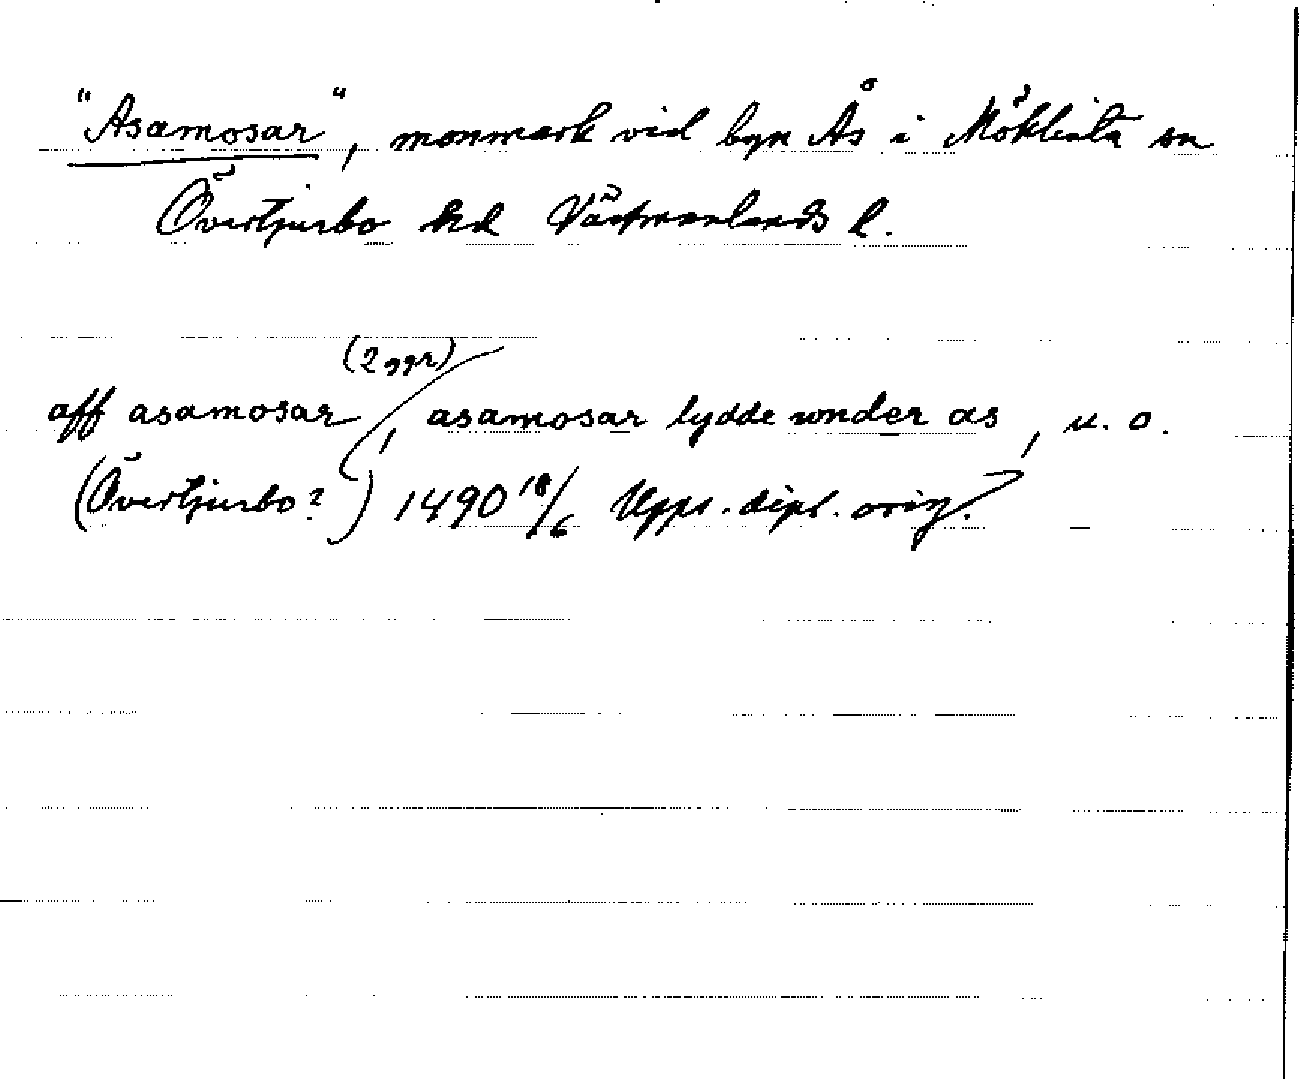 "Asamosar", monmark vid byn Ås i Möklinta sn
Övertjurbo hd Västmanlands l.
(2 ggr)
aff asamosar, asamosar lydde under as, u. o.
(Övertjurbo?) 1490 18/6 Upps. dipl. orig.